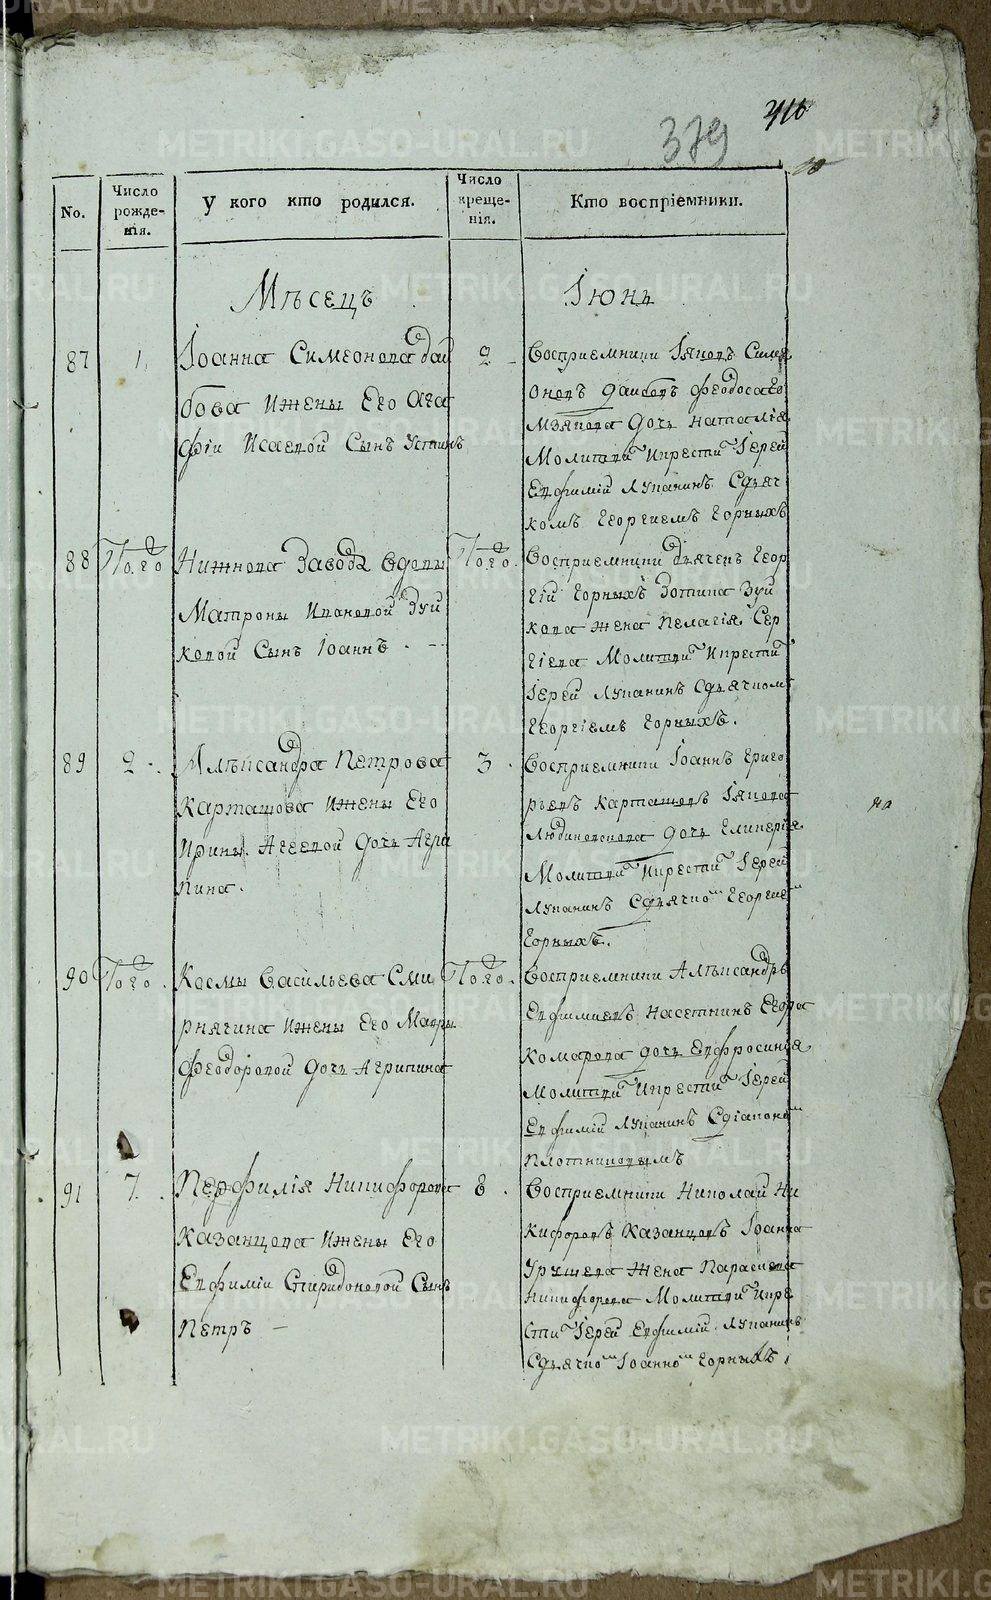 379
No.
Число рожде- нія.
У кого кто родился.
Число креще- нія.
Кто воспріемники.
Мѣсецъ Іюнь
87 1,
Іоанна Симеонова Даи
бова и жены Его Ага
фіи Исаевой Сынъ Устинъ
2
Восприемники Іяковъ Симе
оновъ Даибовъ Феодоса Ео
Мзякова дочь Наталія
Молитви и крести Іерей
Евфимій Лукании Сдьяч
комъ Георгиемъ Горныхъ
88 Того
Нижнова Завода вдовы
Матроны Ивановой Зуй
ковой Сынъ Іоаннъ
Того.
Восприемники дьячекъ Геор
гій Горныхъ Зотика Зуй
кова жена Пелагія Сер
гіева Молитви и крести
Іерей Луканинъ Сдьячком
Георгіемъ Горныхъ.
89 2
Алѣксандра Петрова
Карташова и жены Его
Ирины Агеевой дочь Агри
пина.
3
Восприемники Іоаннъ Григо
рьевъ Карташевъ Іякова
Людиновскова дочь Гликерія
Молитви и крести Іерей
Луканинъ Сдьячко Георгие
Горныхъ.
90 Того.
Космы Васильева Сми
рнягина и жены Его Мавры
Феодоровой дочь Агрипина
Того.
Восприемники Алѣксандръ
Евфимиевъ Насеткинъ Егора
Комарова дочь Евфросинія
Молитви и крести Іерей
Евфимій Луканинъ Сдіаконо
Плотниковымъ
91 7.
Перфилія Никифорова
Казанцова и жены Его
Евфиміи Спиридоновой Сынъ
Петръ
8.
Восприемники Николай Ни
кифоровъ Казанцовъ Іоанна
Ярушева жена Параскева
Никифорова Молитви и кре
сти Іерей Евфимій Луканинъ
Сдьячко Іоанно Горныхъ
на
METRIKI.GASO-URAL.RU